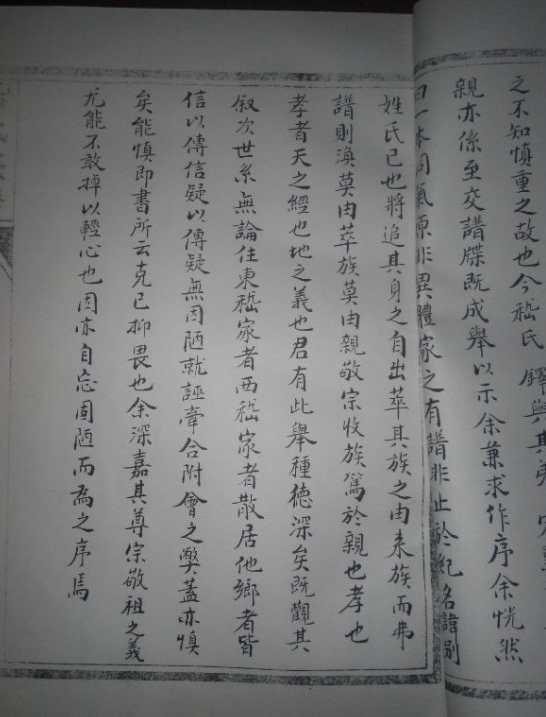 之不知慎重之故也今嵇氏 鐸與其弟
親亦係至交譜牒既成舉以示余兼求作序余恍然
曰一本同氣原非異體家之有譜非止於紀名諱別
姓氏已也將追其身之自出萃其族之由来族而弗
譜則渙莫由萃族莫由親敬宗收族篤於親也孝也
孝者天之經也地之義也君有此舉種德深矣既觀其
叙次世系無論住東嵇家者西嵇家者散居他鄉者皆
信以傳信疑以傳疑無因陋就誣牽合附會之弊蓋亦慎
矣能慎即書所云克已抑畏也余深嘉其尊宗敬祖之義
尤能不敢掉以輕心也因亦自忘固陋而為之序焉